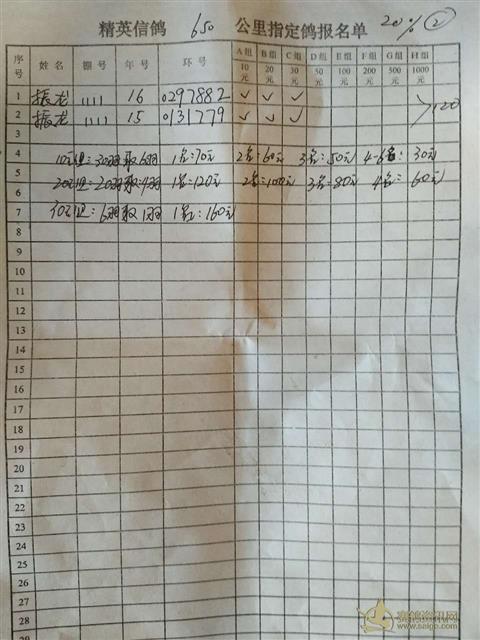 精英信鸽 650 公里指定鸽报名单 20% ②
序号 姓名 棚号 年号 环号 A组 B组 C组 D组 E组 F组 G组 H组
10元 20元 30元 50元 100元 200元 500元 1000元
1 振龙 1111 16 0297882 ✓ ✓ ✓
2 振龙 1111 15 0131779 ✓ ✓ ✓ 120
3
4 10元组:30羽取6羽 1名:70元 2名:60元 3名:50元 4-6名:30元
5 20元组:20羽取4羽 1名:120元 2名:100元 3名:80元 4名:60元
6
7 30元组:6羽取1羽 1名:160元
8
9
10
11
12
13
14
15
16
17
18
19
20
21
22
23
24
25
26
27
28
29
赛鸽资讯网
www.saigp.com